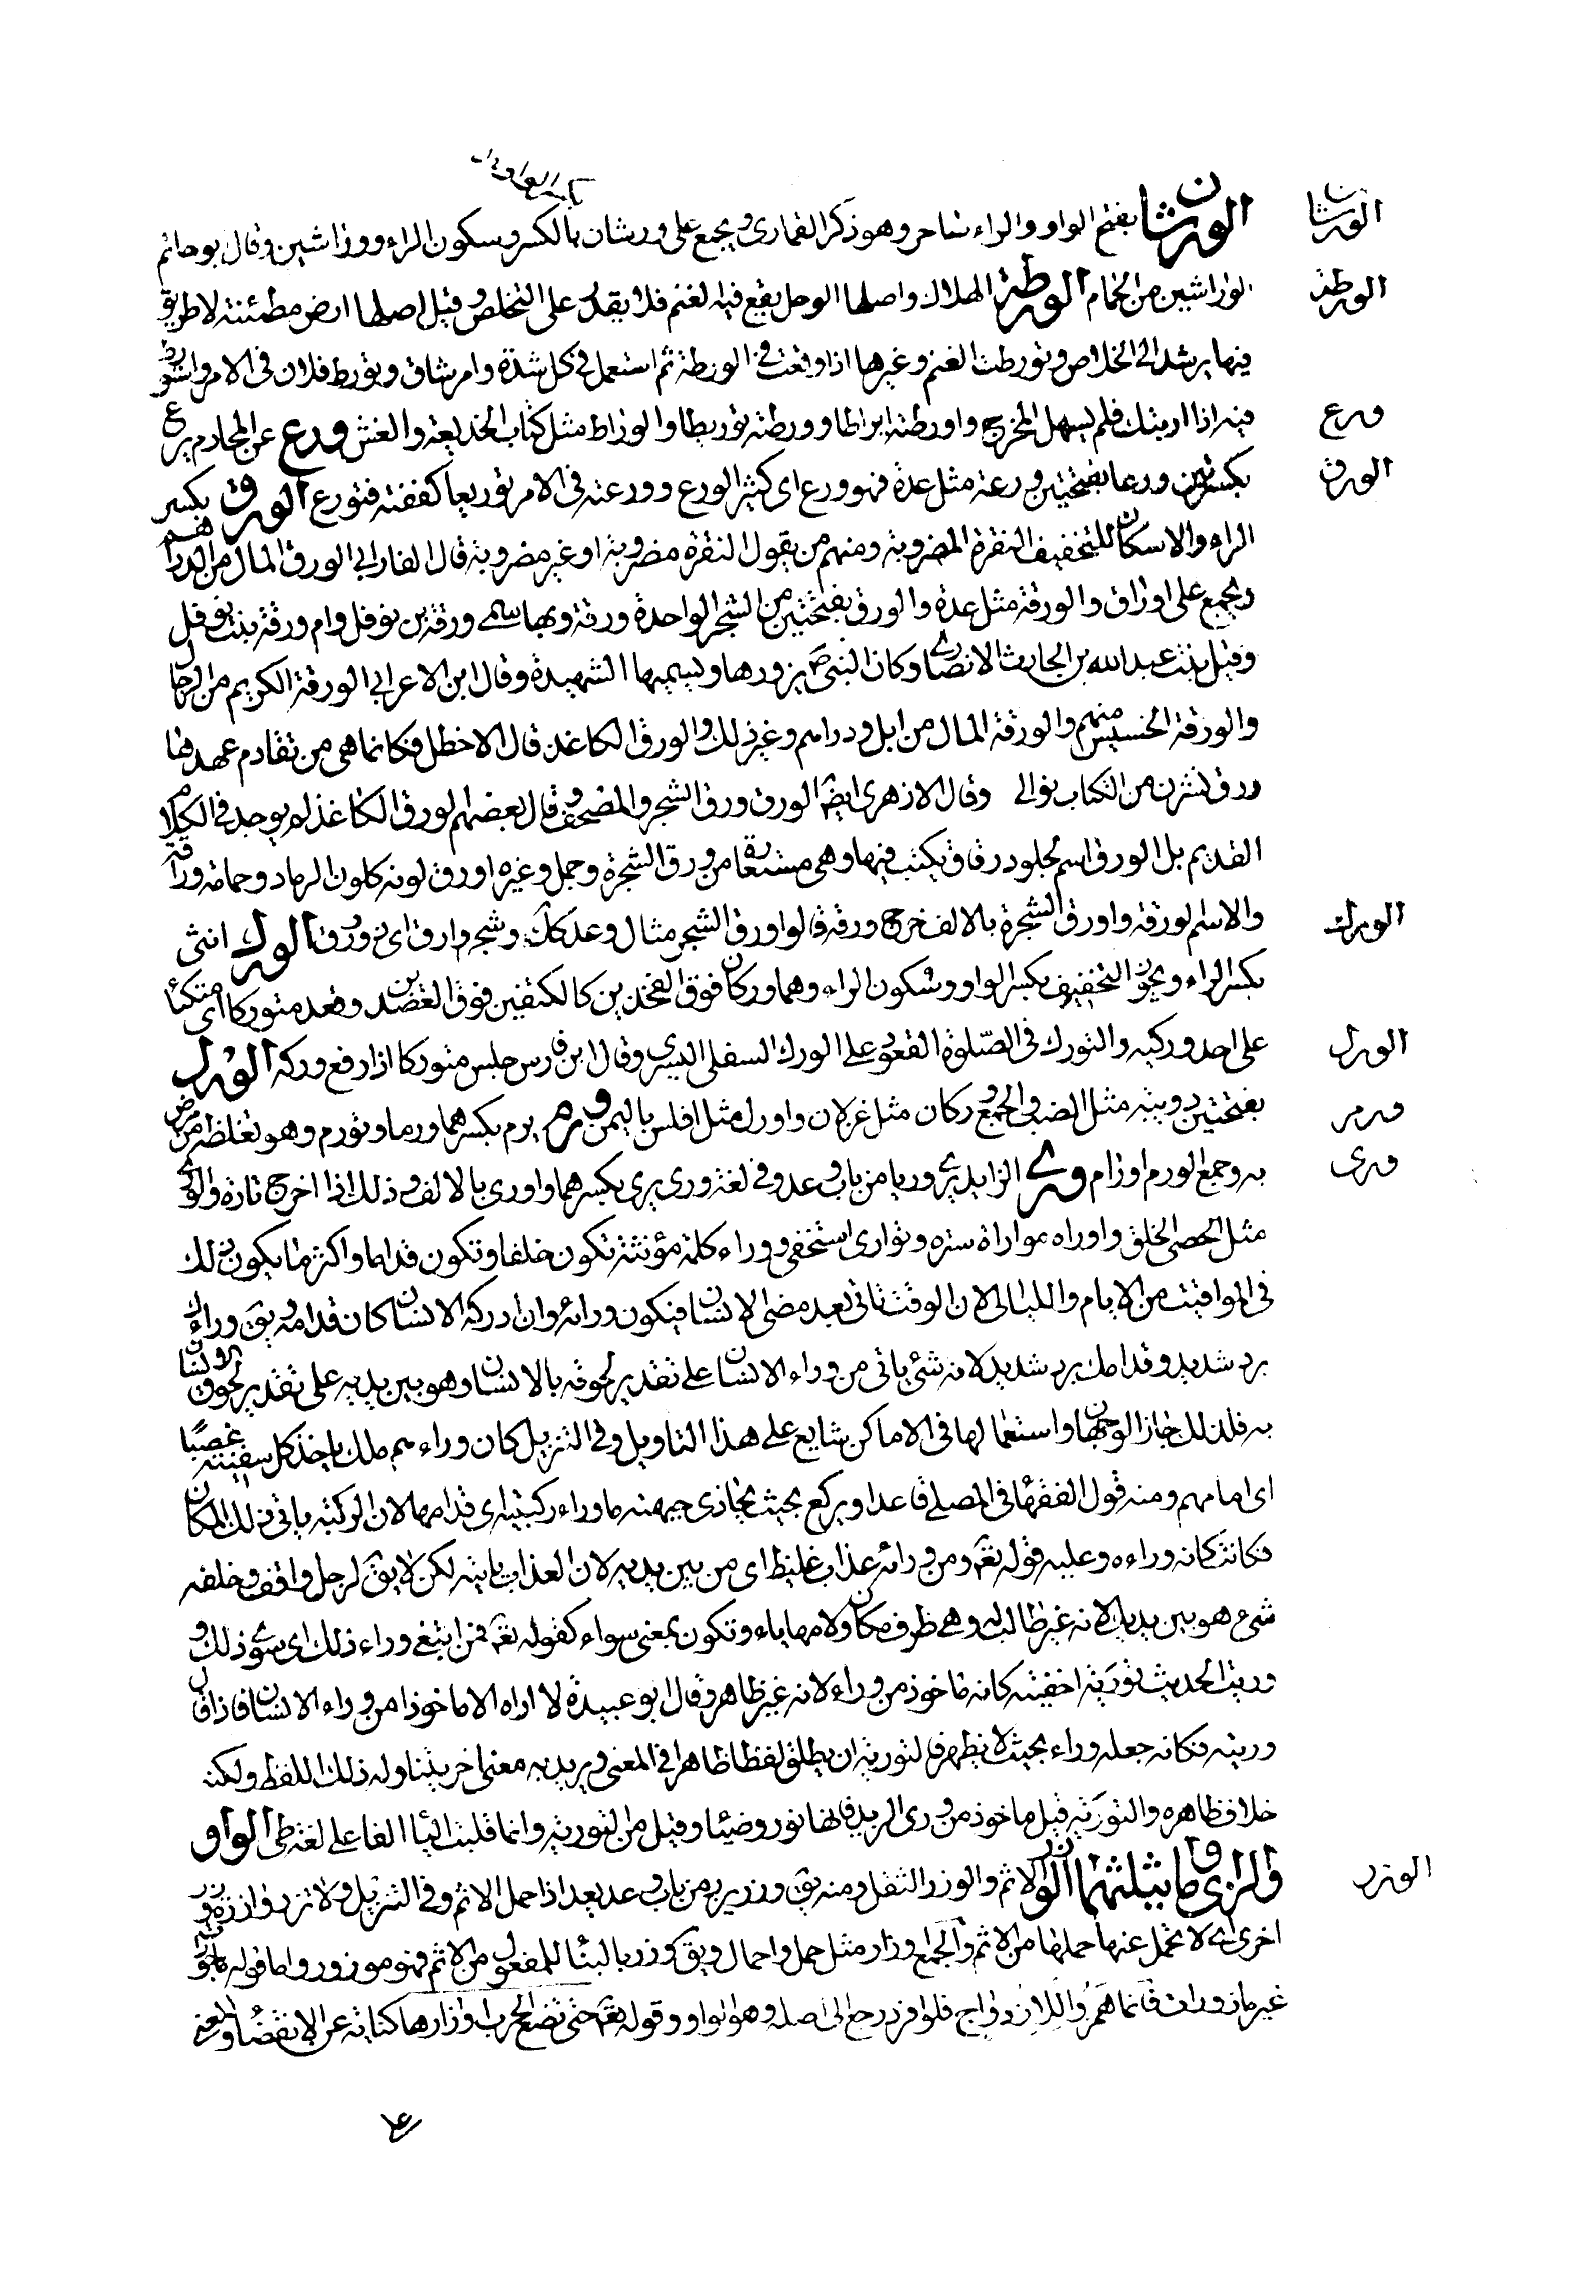 الورشان بفتح الواو والراء ساحر وهو ذكر القماري ويجمع على ورشان بالكسر وسكون الراء ووراشين وقال بوحاتم
الورشان
الوراشين من الحمام الورطة الهلاك واصلها الوحل يقع فيه لغنم فلا يقدر على التخلص وقيل اصلها ارض مطمئنة لا طريق
الورطة
فيها يرشد الى الخلاص وتورطت الغنم وغيرها اذا وقعت في الورطة ثم استعمل في كل شدة وامر شاق وتورط فلان في الامر واستورط
فيه اذا ارتبك فلم يسهل المخرج واورطته ايراطا وورطته توريطا والوراط مثل كتاب الخديعة والغش ورع عن المحارم يرع
ورع
بكسرتين ورعا بفتحتين ورعة مثل عدة فهو ورع اى كثير الورع وورعته فى الامر توريعا كففته فتورع الورق بكسر
الورق
الراء والاسكان للتخفيف النقرة المضروبة ومنهم من يقول النقرة مضروبة او غير مضروبة قال الفارابي الورق المال من الدراهم
ويجمع على اوراق والورقة مثل عدة والورق بفتحتين من الشجر الواحدة ورقة وبها سمى ورقة بن نوفل وام ورقة بنت نوفل
وقيل بنت عبد الله بن الحارث الانصاري وكان النبي ص يزورها ويسميها الشهيدة وقال ابن الاعرابي الورقة الكريم من الرجال
والورقة الخسيس منهم والورقة المال من ابل ودراهم وغير ذلك والورق الكاغذ قال الاخطل فكانما هى من تقادم عهدها
ورق نشرن من الكتاب بوالى وقال الازهرى ايضا الورق ورق الشجر والمصحف وقال بعضهم الورق الكاغذ لم يوجد فى الكلام
القديم بل الورق اسم لجلود رقاق يكتب فيها وهى مستعارة من ورق الشجرة وجمل وغيره اورق لونه كلون الرماد وحمامة ورقاء
والاسم الورقة واورق الشجرة بالالف خرج ورقه قالوا ورق الشجر مثال وعد كك وشجر وارق اى ذو ورق الورك انثى
الورك
بكسر الراء ويجوز التخفيف بكسر الواو وسكون الراء وهما وركان فوق الفخذين كالكتفين فوق العضدين وقعد متوركا اى متكئا
على احد وركيه والتورك فى الصلوة القعود على الورك السفلى اليسرى وقال ابن فارس جلس متوركا اذا رفع وركه الورل
الورل
بفتحتين دويبة مثل الضب والجمع ورلان مثل غزلان واورل مثل افلس باليمن ورم يرم بكسرهما ورما وتورم وهو تغلظ من مرض
ورم
به وجمع الورم اورام ورى الزند يرى وريا من باب وعد وفى لغة ورى يرى بكسرهما واورى بالالف وذلك اذا اخرج ناره والورى
ورى
مثل الحصى الخلق واوراه مواراة ستره وتوارى استخفى ووراء كلمة مؤنثة تكون خلفا وتكون قداما واكثر ما يكون ذلك
فى المواقيت من الايام والليالى لان الوقت ياتى بعد مضى الانسان فيكون ورائه وان ادركه الانسان كان قدامه ويق وراءك
برد شديد وقدامك برد شديد لانه شئ ياتى من وراء الانسان على تقدير لحوقه بالانسان وهو بين يديه على تقدير لحوق الانسان
به فلذلك جاز الوجهان واستعمالها فى الاماكن شايع على هذا التاويل وفى التنزيل كان وراءهم ملك ياخذ كل سفينة غصبا
اى امامهم ومنه قول الفقهاء فى المصلى قاعدا ويركع بحيث يحاذى جبهته ما وراء ركبتيه اى قدامها لان الركبة ياتى ذلك المكان
فكانت كانه وراءه وعليه قوله تعم ومن ورائه عذاب غليظ اى من بين يديه لان العذاب ياتيه لكن لا يق لرجل واقف وخلفه
شئ هو بين يديك لانه غير طالب له وهى ظرف مكان ولامها ياء وتكون بمعنى سواء كقوله تعم فمن ابتغى وراء ذلك اى سوى ذلك و
وريت الحديث تورية اخفيته كانه ماخوذ من وراء لانه غير ظاهر وقال ابو عبيدة لا اراه الا ماخوذا من وراء الانسان فاذا قال
وريته فكانه جعله وراء بحيث لا يظهر فالتورية ان يطلق لفظا ظاهرا فى المعنى ويريد به معنى اخر يتناوله ذلك اللفظ ولكنه
خلاف ظاهره والتورية قيل ماخوذ من ورى الزند فانها نور وضياء وقيل من التورية وانما قلبت الياء الفا على لغة طى الواو
والزاى وما يثلثهما الوزر الاثم والوزر الثقل ومنه يق وزر يزر من باب وعد يعد اذا حمل الاثم وفى التنزيل ولا تزر وازرة وزر
الوزر
اخرى اى لا تحمل عنها حملها من الاثم والجمع اوزار مثل حمل واحمال ويق وزر بالبناء للمفعول من الاثم فهو موزور واما قوله ماجورات
غير مازورات فانما همز للازدواج فلو افرد رجع الى اصله وهو الواو وقوله تعم حتى تضع الحرب اوزارها كناية عن الانقضاء والمعنى